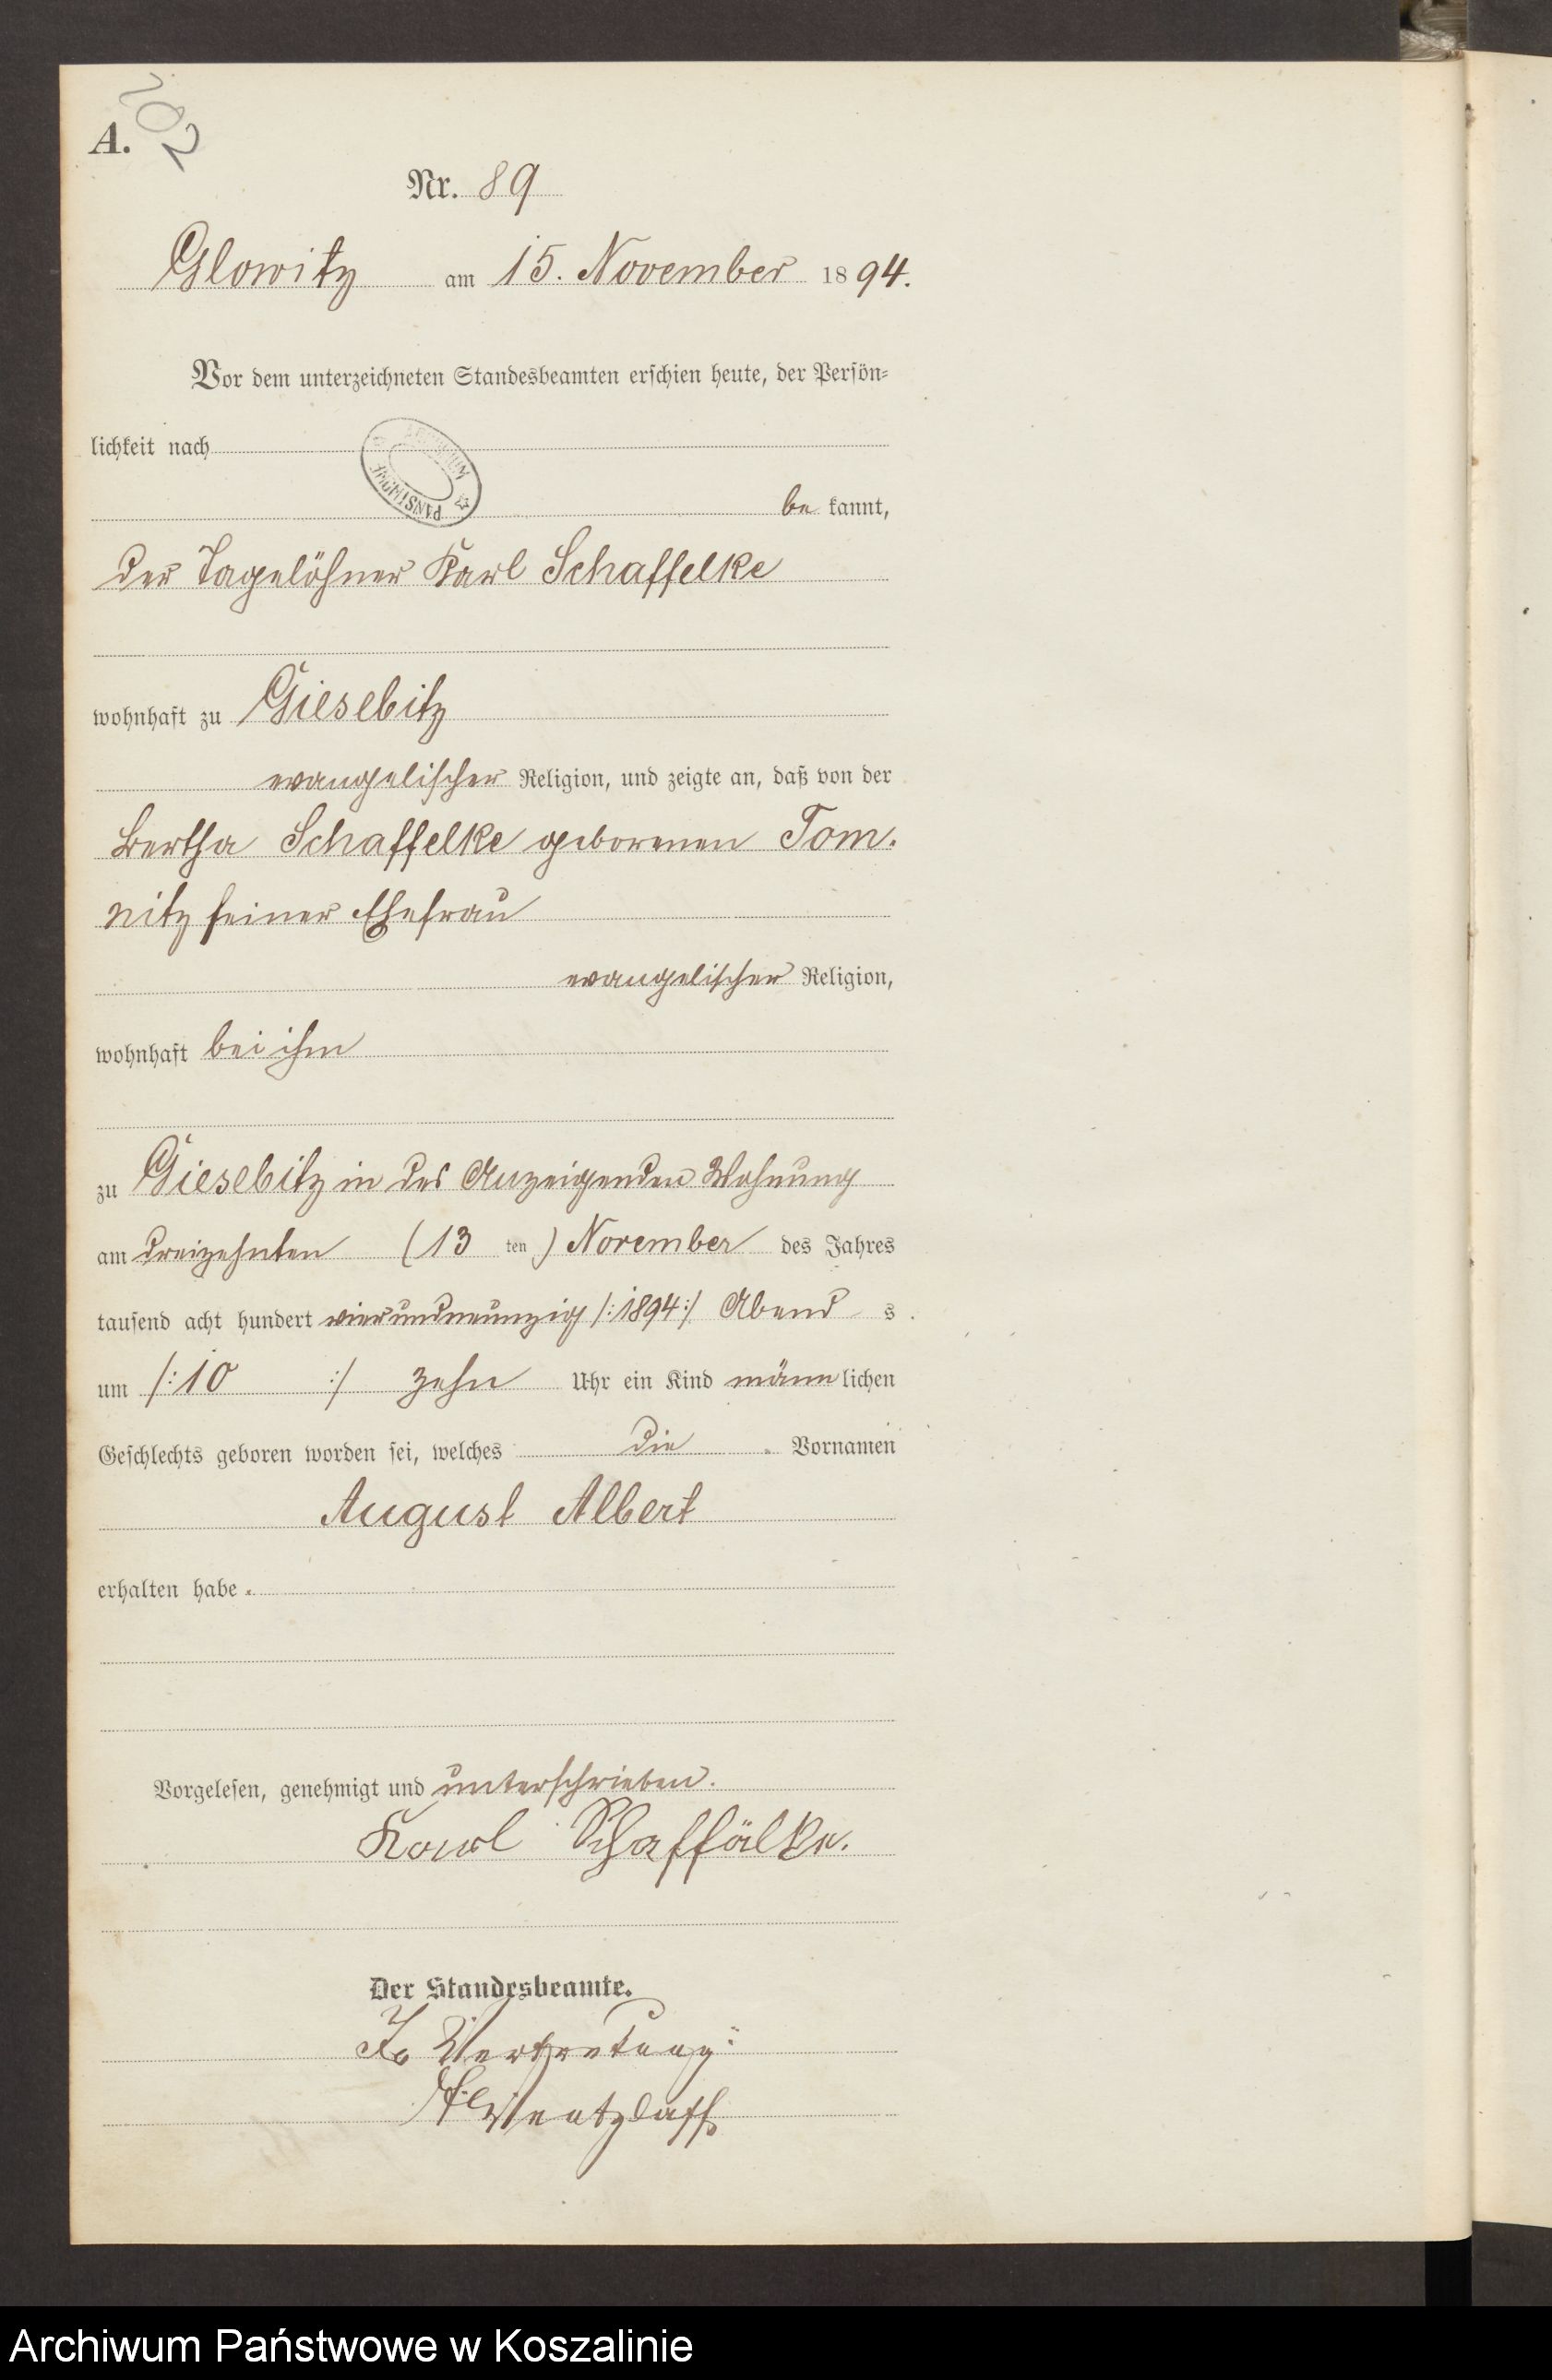 102
A.
Nr. 89
Glowitz am 15. November 1894.
Vor dem unterzeichneten Standesbeamten erschien heute, der Persön-
lichkeit nach
be kannt,
der Tagelöhner Karl Schaffelke
wohnhaft zu Giesebitz
evangelischer Religion, und zeigte an, daß von der
Bertha Schaffelke geborenen Tom-
nitz seiner Ehefrau
evangelischer Religion,
wohnhaft bei ihm
zu Giesebitz in des Anzeigenden Wohnung
am dreizehnten (13 ten) November des Jahres
tausend acht hundert vierundneunzig /:1894:/ Abend s
um /:10 :/ zehn Uhr ein Kind männlichen
Geschlechts geboren worden sei, welches die Vornamen
August Albert
erhalten habe.
Vorgelesen, genehmigt und unterschrieben.
Karl Schaffälke.
Der Standesbeamte.
In Vertretung:
Wentzlaff
Archiwum Państwowe w Koszalinie